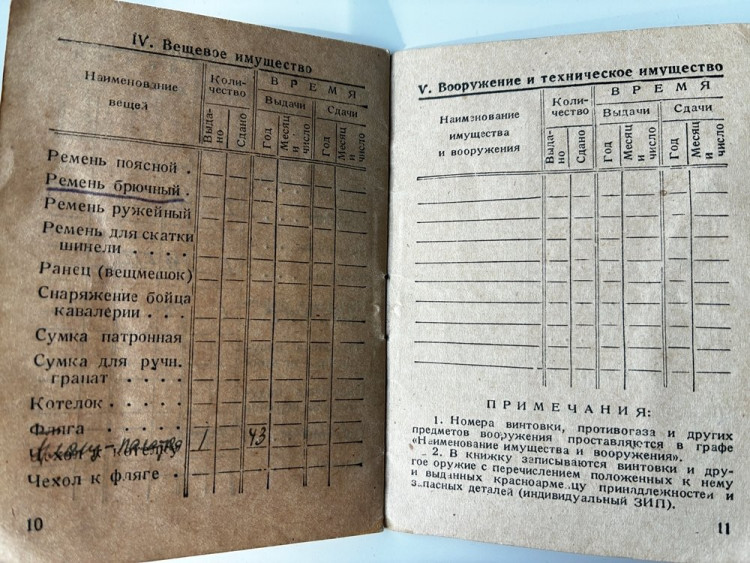 IV. Вещевое имущество
Наименование
вещей
Коли-
чество
ВРЕМЯ
Выдачи
Сдачи
Выда-
но
Сдано
Год
Месяц
и
число
Год
Месяц
и
число
Ремень поясной .
Ремень брючный .
Ремень ружейный
Ремень для скатки
шинели . . . .
Ранец (вещмешок)
Снаряжение бойца
кавалерии . . .
Сумка патронная
Сумка для ручн.
гранат . . . .
Котелок . . . .
Фляга . . . .
1 43
Чехол к фляге .
10
V. Вооружение и техническое имущество
Наименование
имущества
и вооружения
Коли-
чество
ВРЕМЯ
Выдачи
Сдачи
Выда-
но
Сдано
Год
Месяц
и
число
Год
Месяц
и
число
ПРИМЕЧАНИЯ:
1. Номера винтовки, противогаза и других
предметов вооружения проставляются в графе
«Наименование имущества и вооружения».
2. В книжку записываются винтовки и дру-
гое оружие с перечислением положенных к нему
и выданных красноармейцу принадлежностей и
запасных деталей (индивидуальный ЗИП).
11